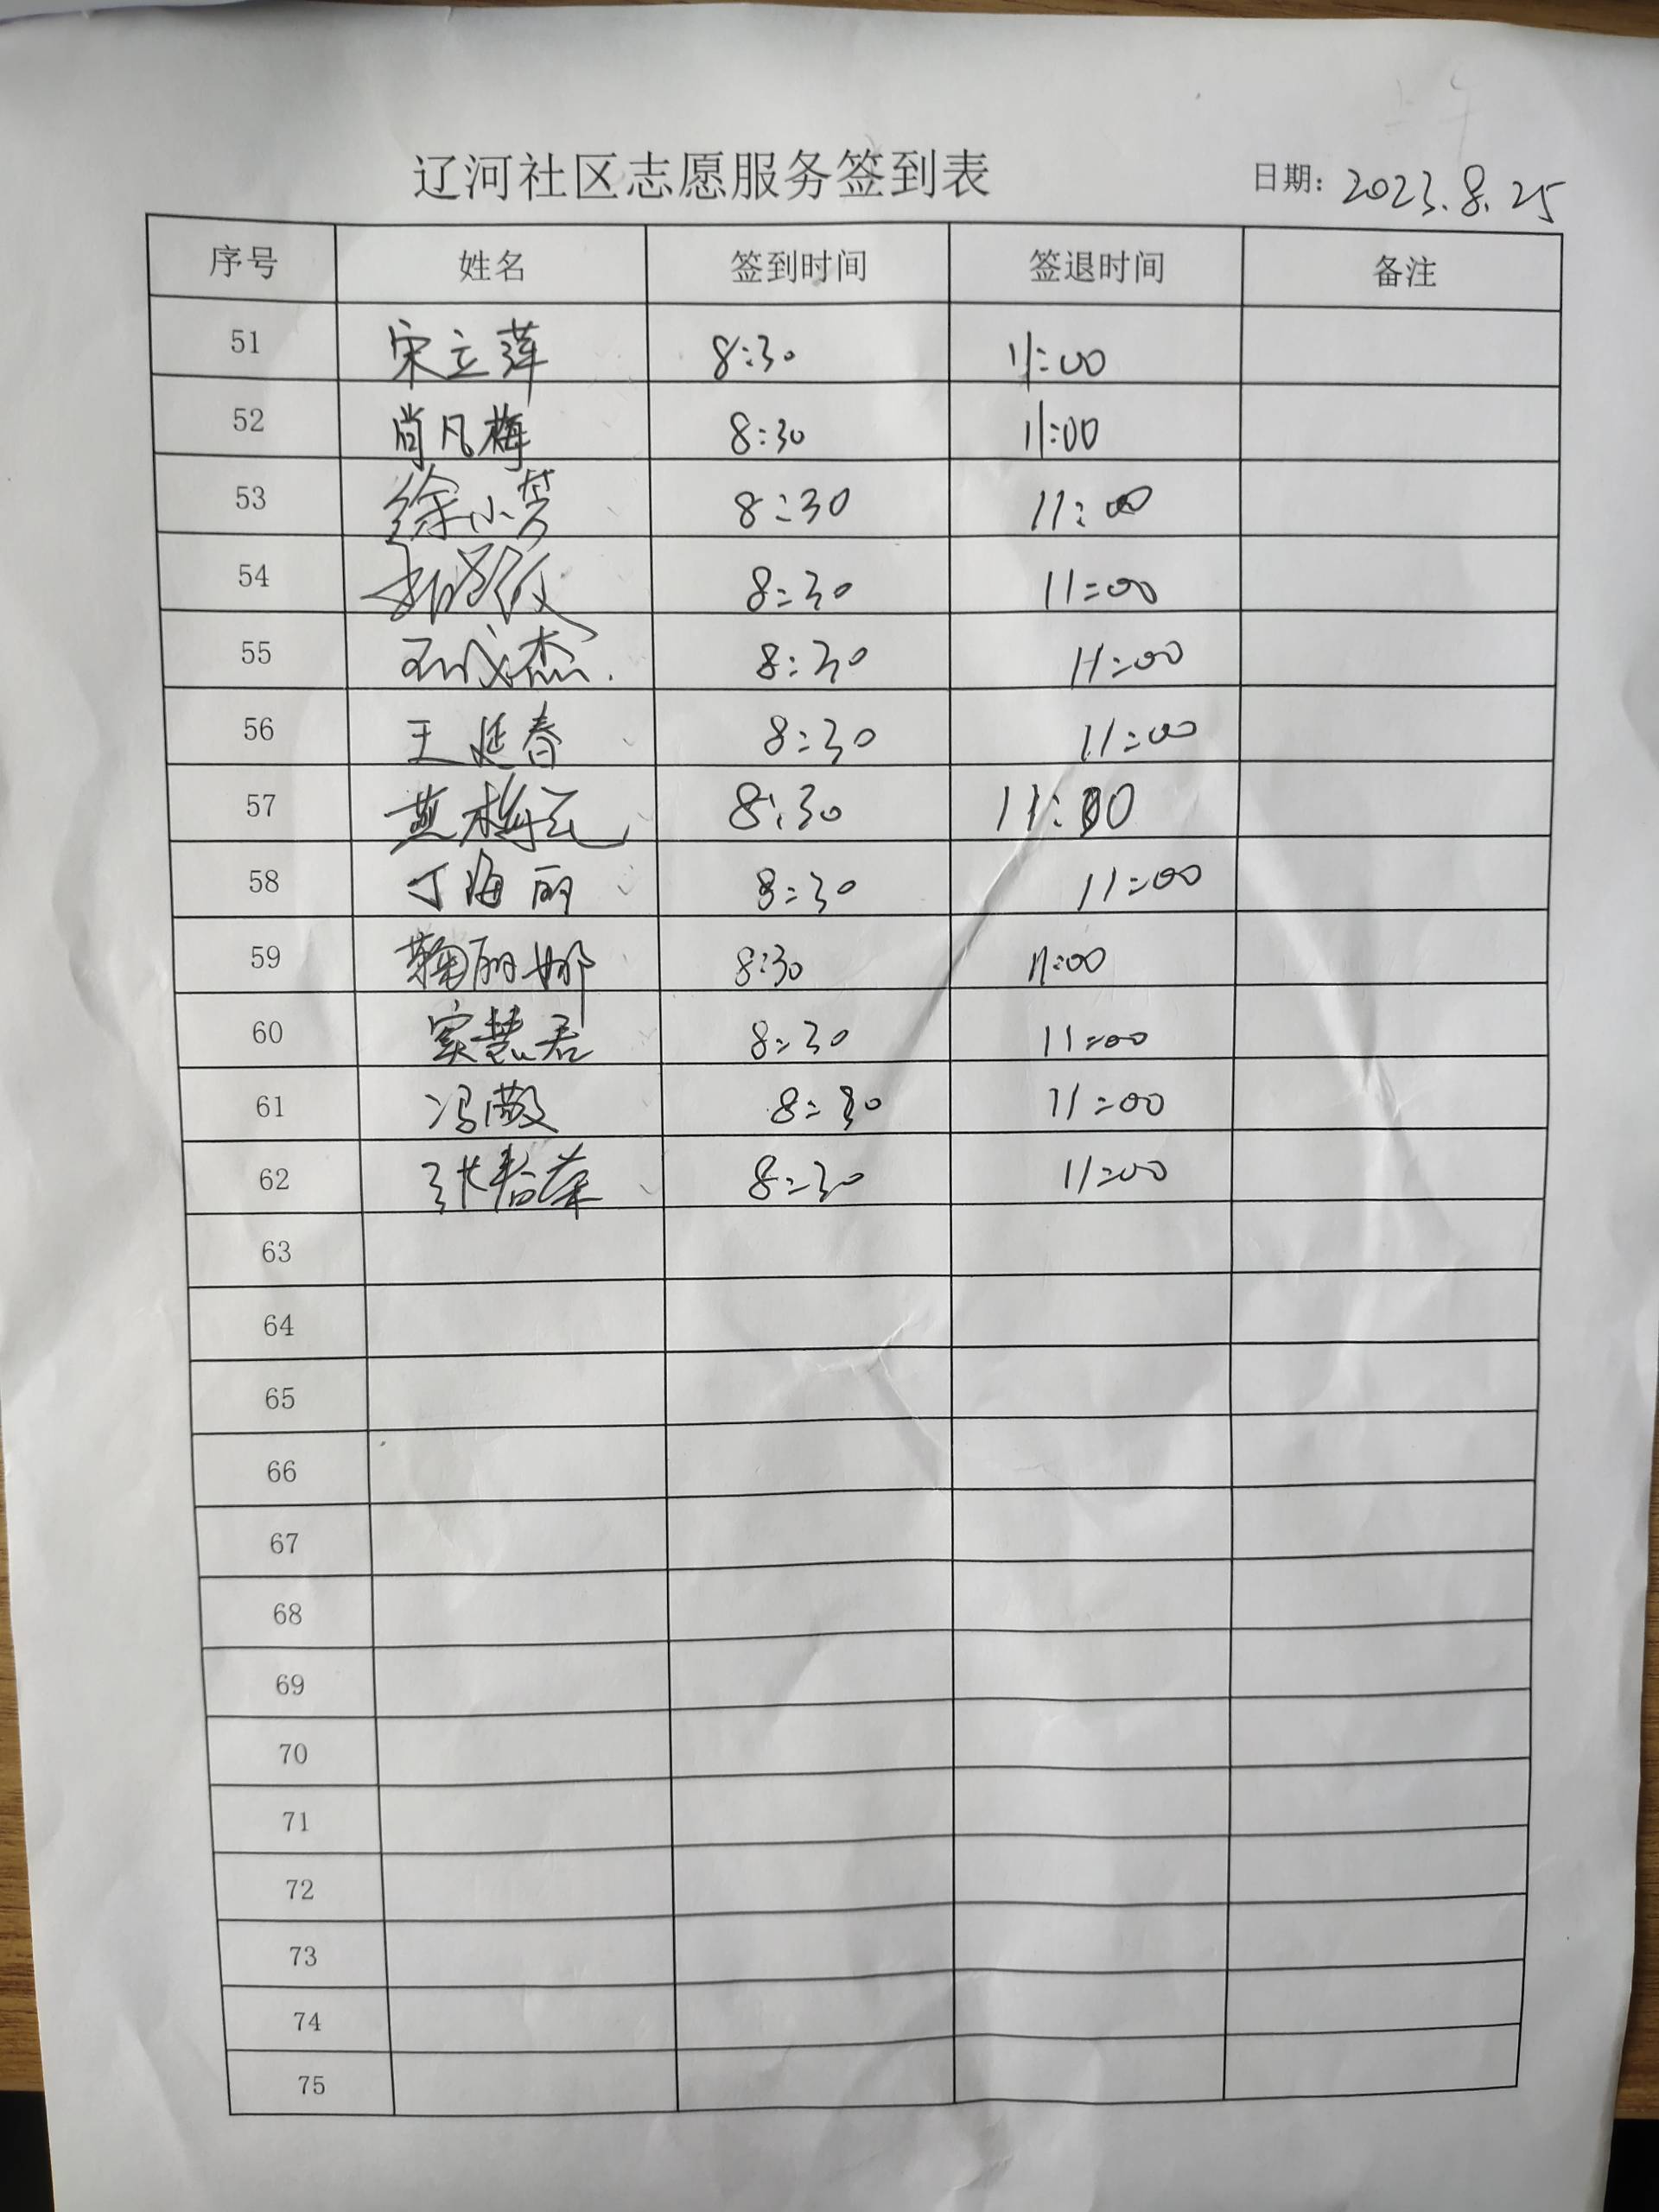 辽河社区志愿服务签到表 日期：2023.8.25
序号 姓名 签到时间 签退时间 备注
51 宋立萍 8:30 11:00
52 尚凡梅 8:30 11:00
53 徐小芳 8:30 11:00
54 8:30 11:00
55 8:30 11:00
56 王延春 8:30 11:00
57 8:30 11:00
58 丁海丽 8:30 11:00
59 鞠丽娜 8:30 11:00
60 窦慧君 8:30 11:00
61 冯薇 8:30 11:00
62 8:30 11:00
63
64
65
66
67
68
69
70
71
72
73
74
75